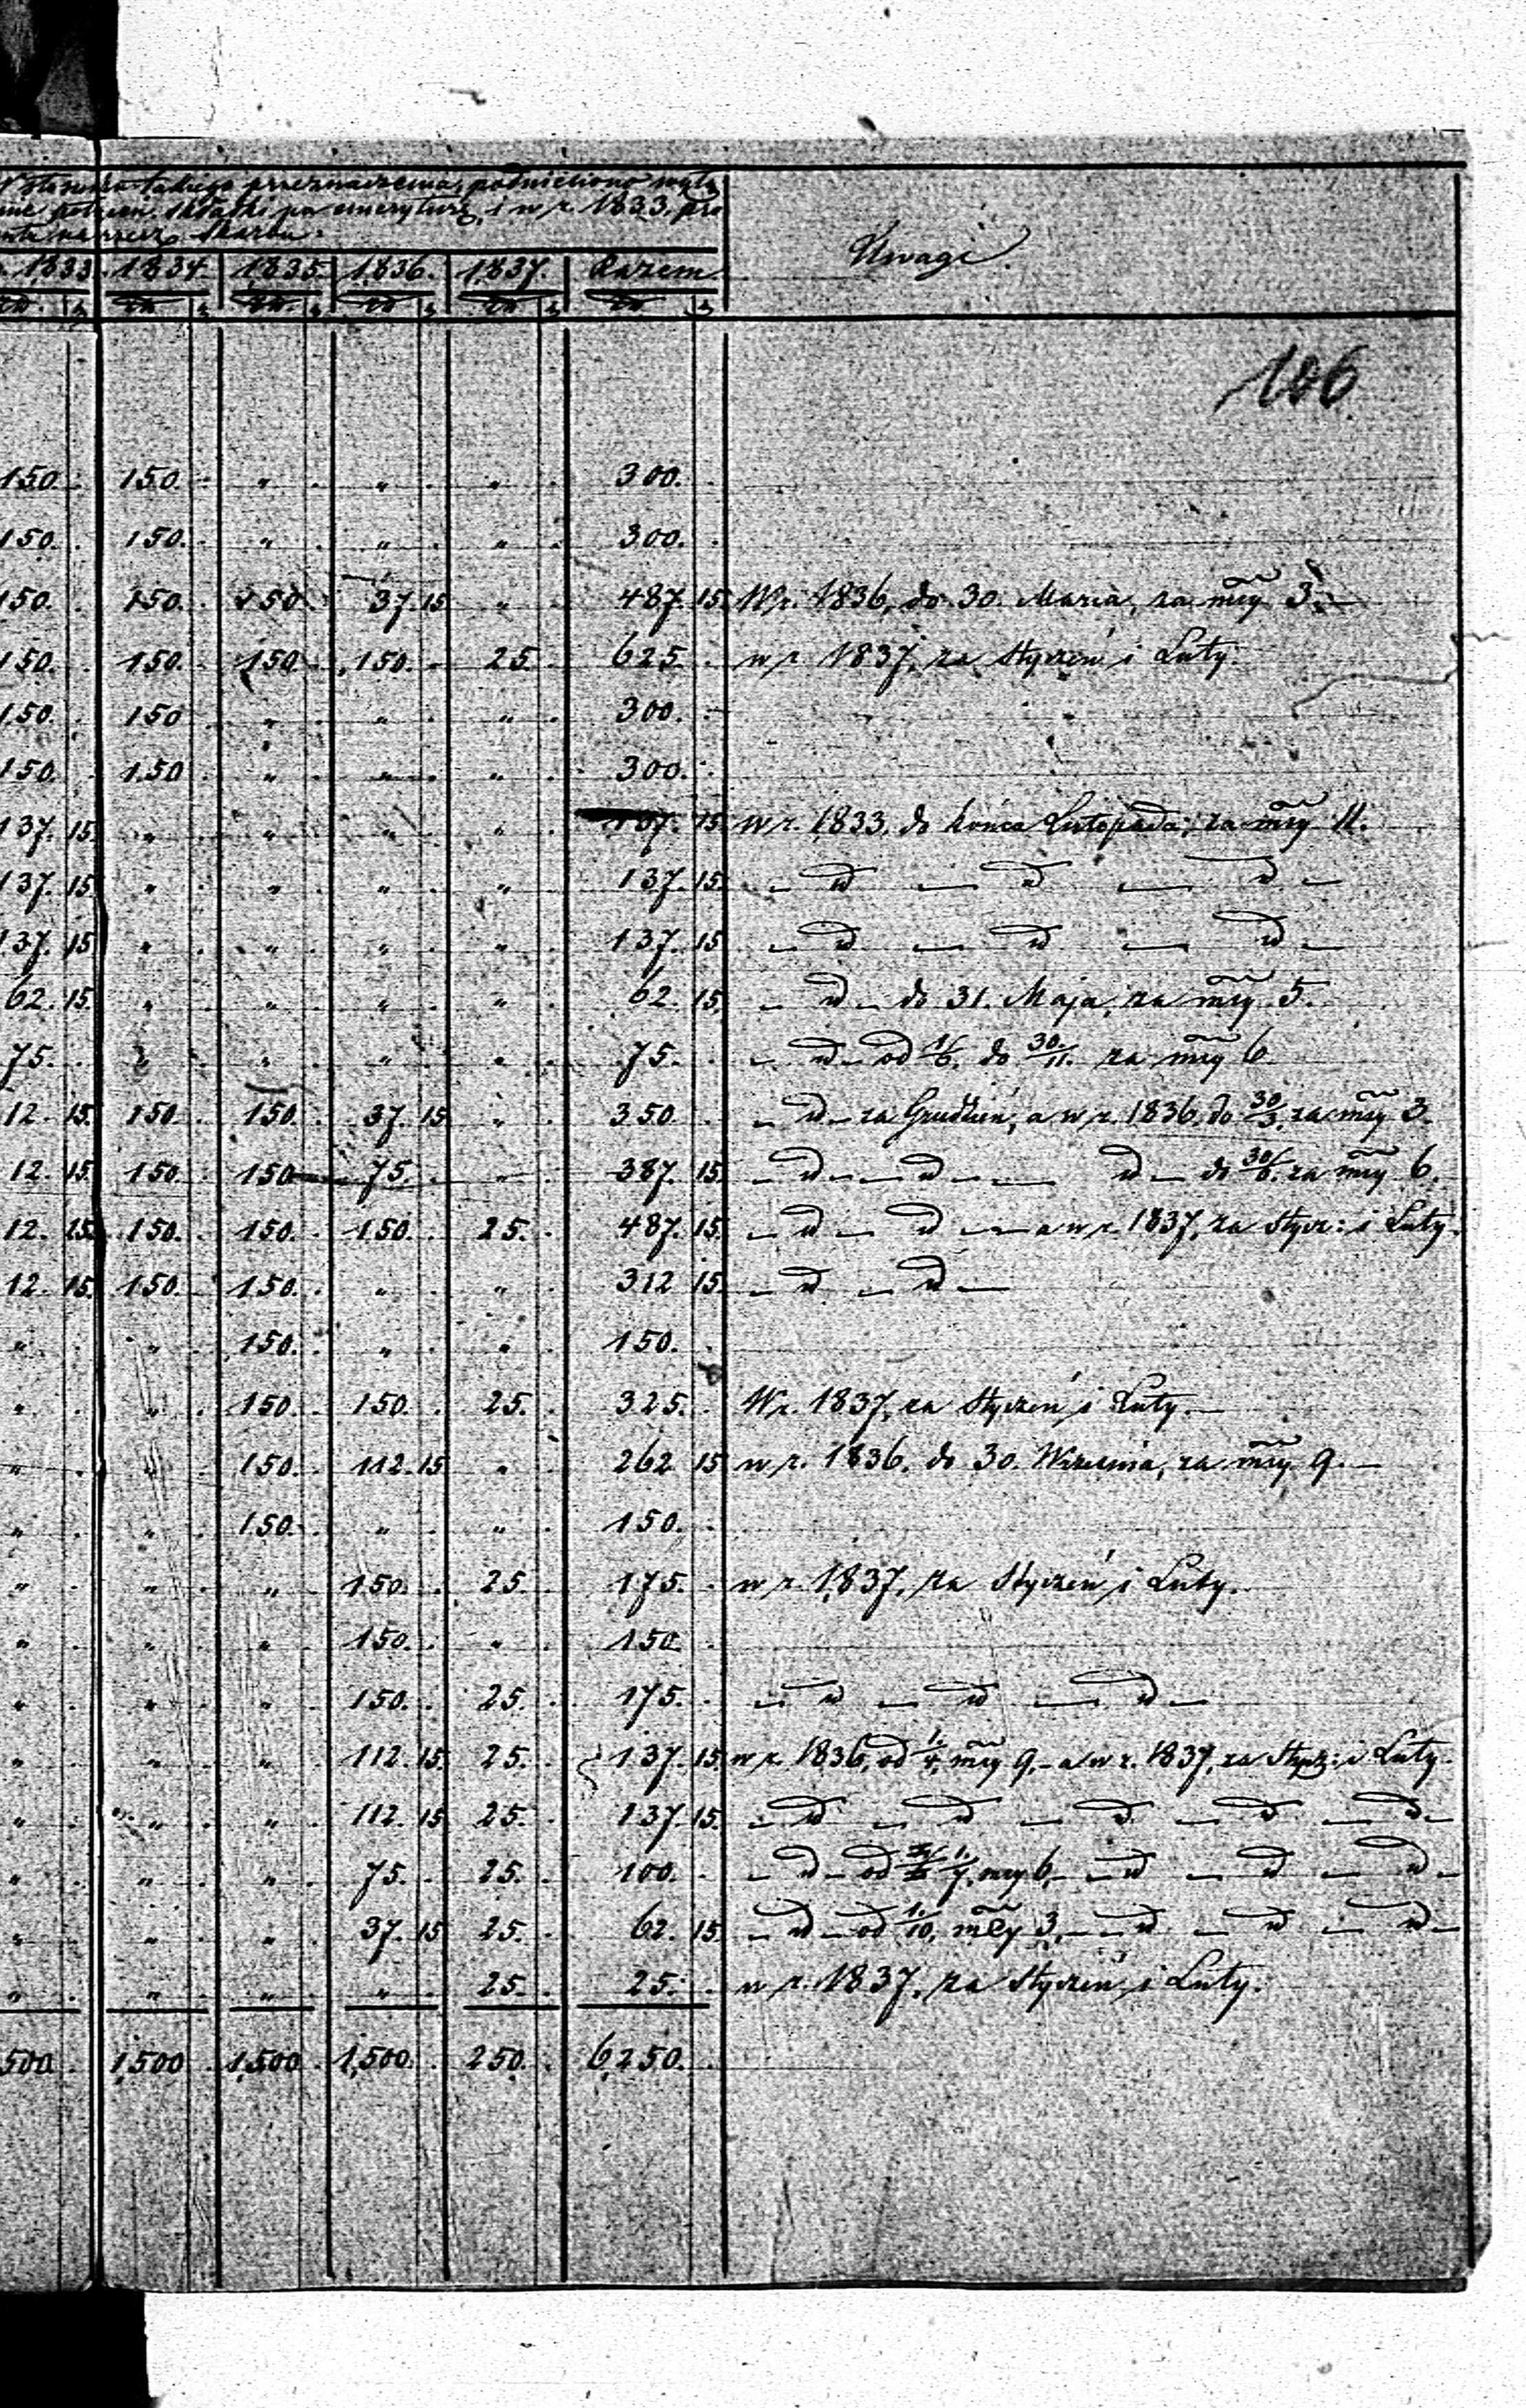 W stosunku takiego przeznaczenia, podniesiono wyłą
nie potrąc. składki na emeryturę, i w r. 1833. pro
na rzecz Skarbu:
1833. 1834. 1835. 1836. 1837. Razem Uwagi.
106
150. 150. " " " 300.
150. 150. " " " 300.
150. 150. 150. 37. 15 " 487. 15. W r. 1836, do 30. Marca, za mcy 3.
150. 150. 150. 150. 25. 625. w r. 1837, za Styczeń i Luty.
150. 150 " " " 300.
150. 150 " " " 300.
137. 15. " " " " 137. 15. w r. 1833, do końca Listopada, za mcy 11.
137. 15. " " " " 137. 15. – d – d – d –
137. 15 " " " " 137. 15 – d – d – d –
62. 15. " " " " 62. 15. – d – do 31. Maja, za mcy 5.
75. " " " " 75. – d – od 1/6. do 30./11. za mcy 6
12. 15. 150. 150. 37. 15 " 350. – d – za Grudzień, a w r. 1836, do 30/3. za mcy 3.
12. 15. 150. 150 75. " 387. 15. – d – d – d – do 30/6. za mcy 6.
12. 15. 150. 150. 150. 25. 487. 15. – d – d – a w r. 1837, za Stycz: i Luty.
12. 15. 150. 150. " " 312 15. – d – d –
" " 150. " " 150.
" " 150. 150. 25. 325. W r. 1837, za Styczeń i Luty. –
" " 150. 112. 15 " 262 15 w r. 1836, do 30. Września, za mcy 9. –
" " 150. " " 150.
" " " 150. 25. 175. w r. 1837, za Styczeń i Luty.
" " " 150. " 150.
" " " 150. 25. 175. – d – d – d –
" " " 112. 15. 25. 137. 15. w r. 1836, od 1./4. mcy 9, – a w r. 1837, za Stycz: i Luty.
" " " 112. 15 25. 137. 15. – d – d – d – d – d –
" " " 75. 25. 100. – d – od 1./7. mcy 6, – d – d – d –
" " " 37. 15 25. 62. 15. – d – od 1./10. mcy 3, – d – d – d –
" " " " 25. 25. w r. 1837, za Styczeń i Luty.
500. 1,500. 1,500. 1,500. 250. 6,250.